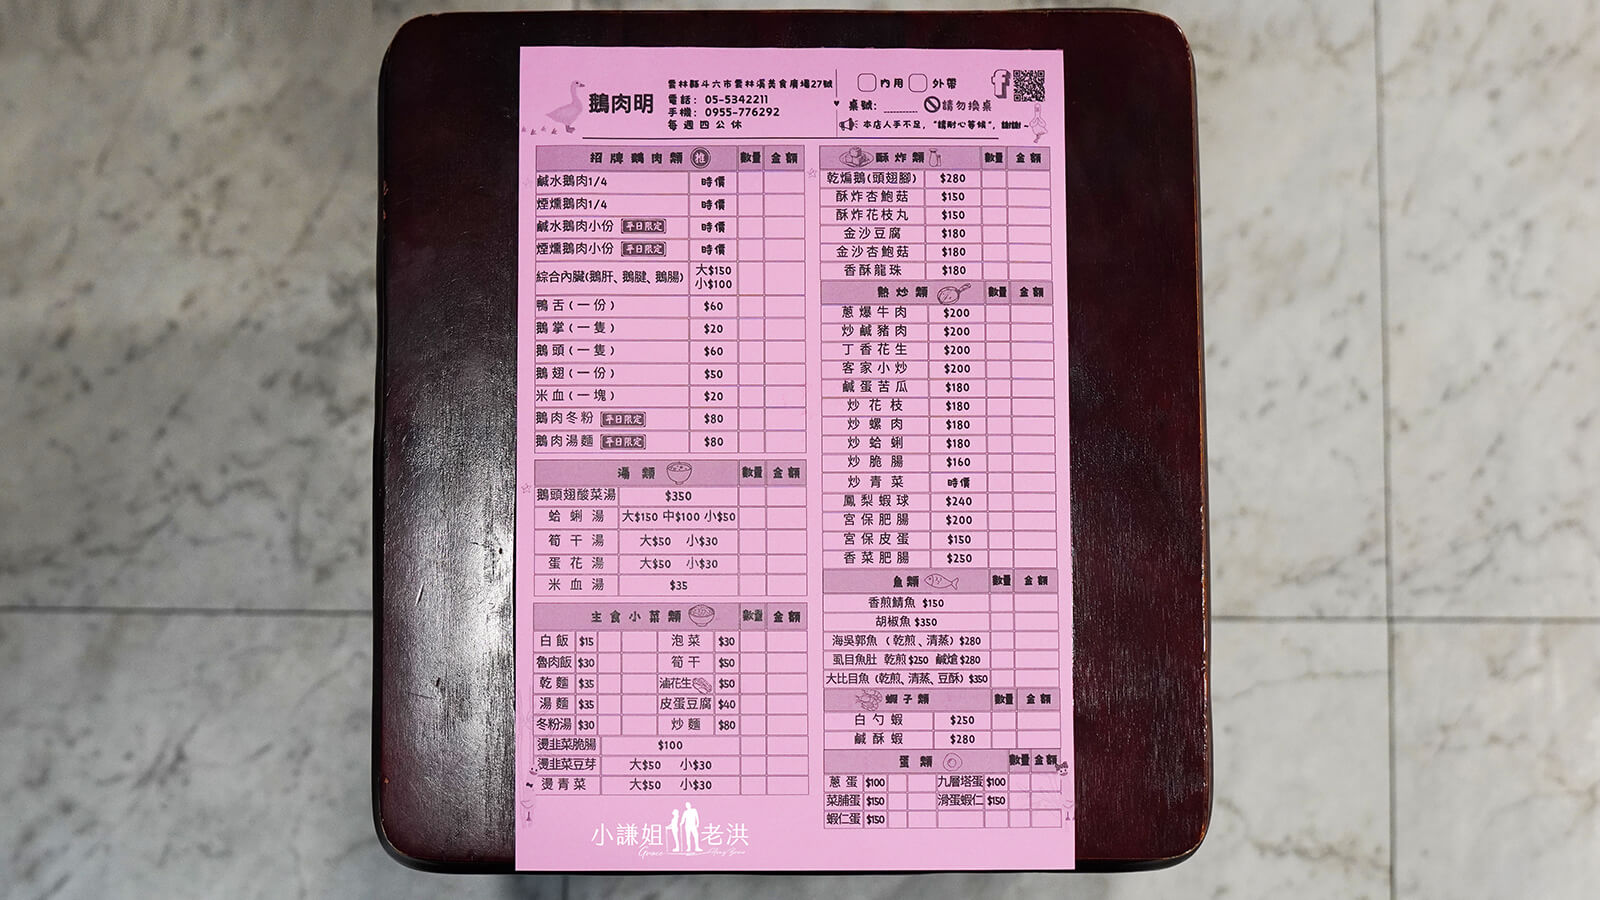 鵝肉明
雲林縣斗六市雲林溪美食廣場27號
電話: 05-5342211
手機: 0955-776292
每週四公休
內用 外帶
桌號: 請勿換桌
本店人手不足, "請耐心等候", 謝謝!~
招牌鵝肉類 推 數量 金額
鹹水鵝肉1/4 時價
煙燻鵝肉1/4 時價
鹹水鵝肉小份 平日限定 時價
煙燻鵝肉小份 平日限定 時價
綜合內臟(鵝肝、鵝腱、鵝腸) 大$150 小$100
鴨舌(一份) $60
鵝掌(一隻) $20
鵝頭(一隻) $60
鵝翅(一份) $50
米血(一塊) $20
鵝肉冬粉 平日限定 $80
鵝肉湯麵 平日限定 $80
湯類 數量 金額
鵝頭翅酸菜湯 $350
蛤蜊湯 大$150 中$100 小$50
筍干湯 大$50 小$30
蛋花湯 大$50 小$30
米血湯 $35
主食小菜類 數量 金額
白飯 $15 泡菜 $30
魯肉飯 $30 筍干 $50
乾麵 $35 滷花生 $50
湯麵 $35 皮蛋豆腐 $40
冬粉湯 $30 炒麵 $80
燙韭菜脆腸 $100
燙韭菜豆芽 大$50 小$30
燙青菜 大$50 小$30
酥炸類 數量 金額
乾煸鵝(頭翅腳) $280
酥炸杏鮑菇 $150
酥炸花枝丸 $150
金沙豆腐 $180
金沙杏鮑菇 $180
香酥龍珠 $180
熱炒類 數量 金額
蔥爆牛肉 $200
炒鹹豬肉 $200
丁香花生 $200
客家小炒 $200
鹹蛋苦瓜 $180
炒花枝 $180
炒螺肉 $180
炒蛤蜊 $180
炒脆腸 $160
炒青菜 時價
鳳梨蝦球 $240
宮保肥腸 $200
宮保皮蛋 $150
香菜肥腸 $250
魚類 數量 金額
香煎鯖魚 $150
胡椒魚 $350
海吳郭魚 (乾煎、清蒸) $280
虱目魚肚 乾煎$250 鹹熗$280
大比目魚 (乾煎、清蒸、豆酥) $350
蝦子類 數量 金額
白勺蝦 $250
鹹酥蝦 $280
蛋類 數量 金額
蔥蛋 $100 九層塔蛋 $100
菜脯蛋 $150 滑蛋蝦仁 $150
蝦仁蛋 $150
小謙姐 老洪
Grace